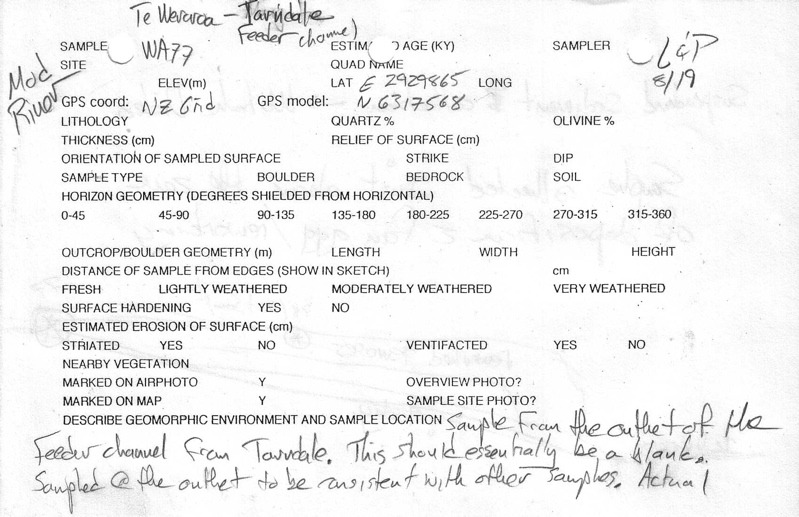 Te Weraroa - Tarndale
Feeder channel)
SAMPLE WA77 ESTIM D AGE (KY) SAMPLER L&P
SITE QUAD NAME 8/19
Mod River
ELEV(m) LAT E 2929865 LONG
GPS coord: NZ Grid GPS model: N 6317568
LITHOLOGY QUARTZ % OLIVINE %
THICKNESS (cm) RELIEF OF SURFACE (cm)
ORIENTATION OF SAMPLED SURFACE STRIKE DIP
SAMPLE TYPE BOULDER BEDROCK SOIL
HORIZON GEOMETRY (DEGREES SHIELDED FROM HORIZONTAL)
0-45 45-90 90-135 135-180 180-225 225-270 270-315 315-360
OUTCROP/BOULDER GEOMETRY (m) LENGTH WIDTH HEIGHT
DISTANCE OF SAMPLE FROM EDGES (SHOW IN SKETCH) cm
FRESH LIGHTLY WEATHERED MODERATELY WEATHERED VERY WEATHERED
SURFACE HARDENING YES NO
ESTIMATED EROSION OF SURFACE (cm)
STRIATED YES NO VENTIFACTED YES NO
NEARBY VEGETATION
MARKED ON AIRPHOTO Y OVERVIEW PHOTO?
MARKED ON MAP Y SAMPLE SITE PHOTO?
DESCRIBE GEOMORPHIC ENVIRONMENT AND SAMPLE LOCATION Sample from the outlet of the
Feeder channel from Tarndale. This should essentially be a blank.
Sampled @ the outlet to be consistent with other samples. Actual